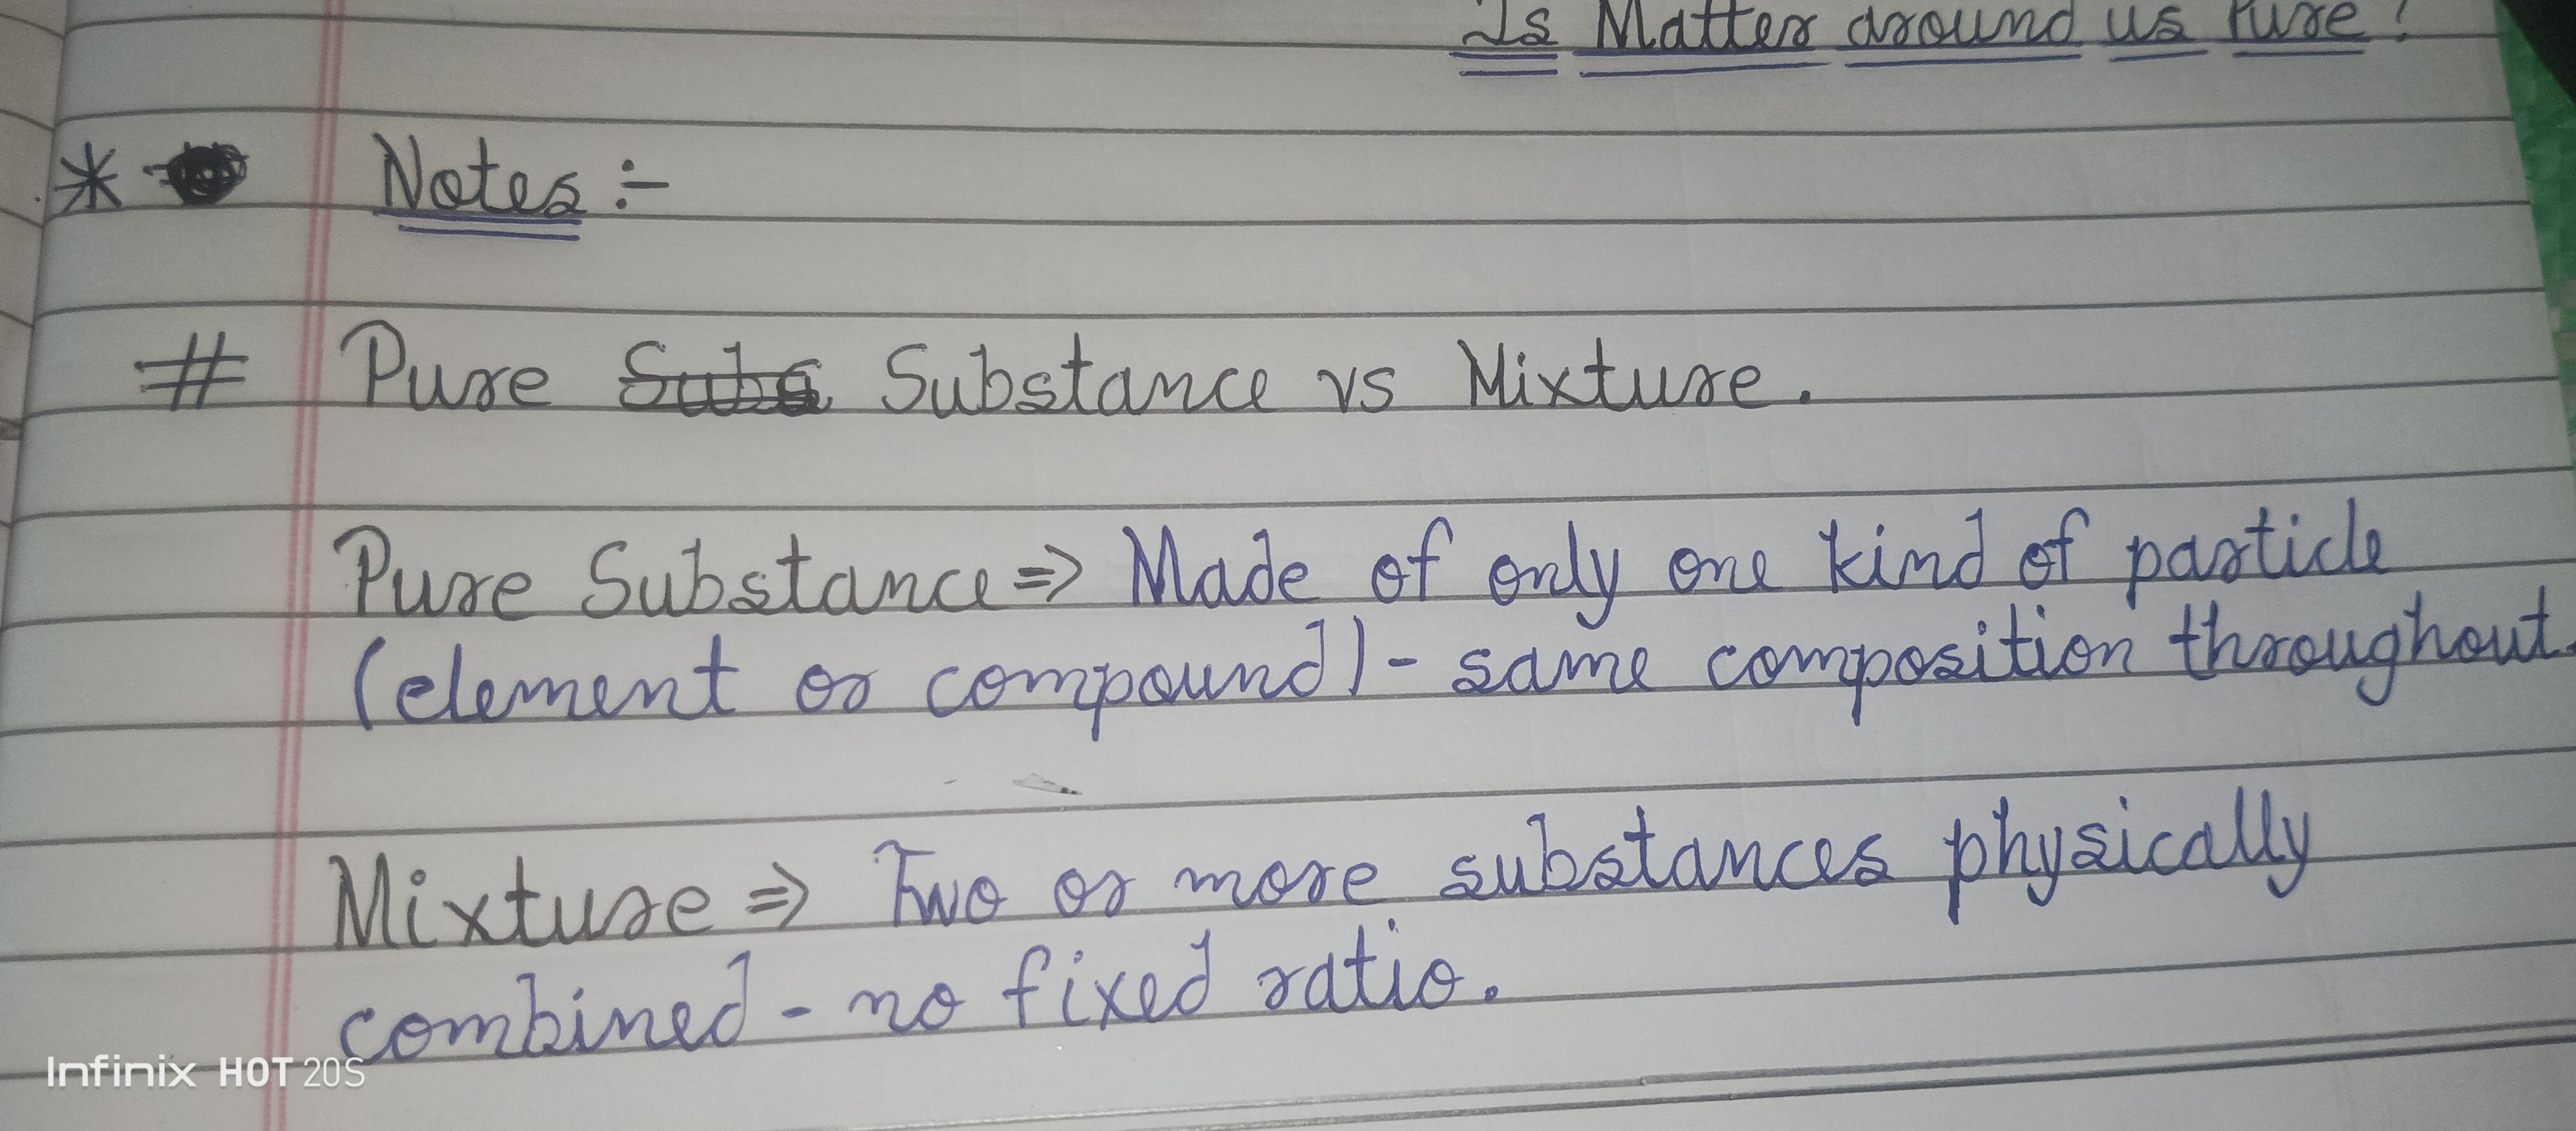 Is Matter around us Pure?
* Notes :-
# Pure Subs Substance vs Mixture.
Pure Substance => Made of only one kind of particle
(element or compound) - same composition throughout.
Mixture => Two or more substances physically
combined - no fixed ratio.
Infinix HOT 20S